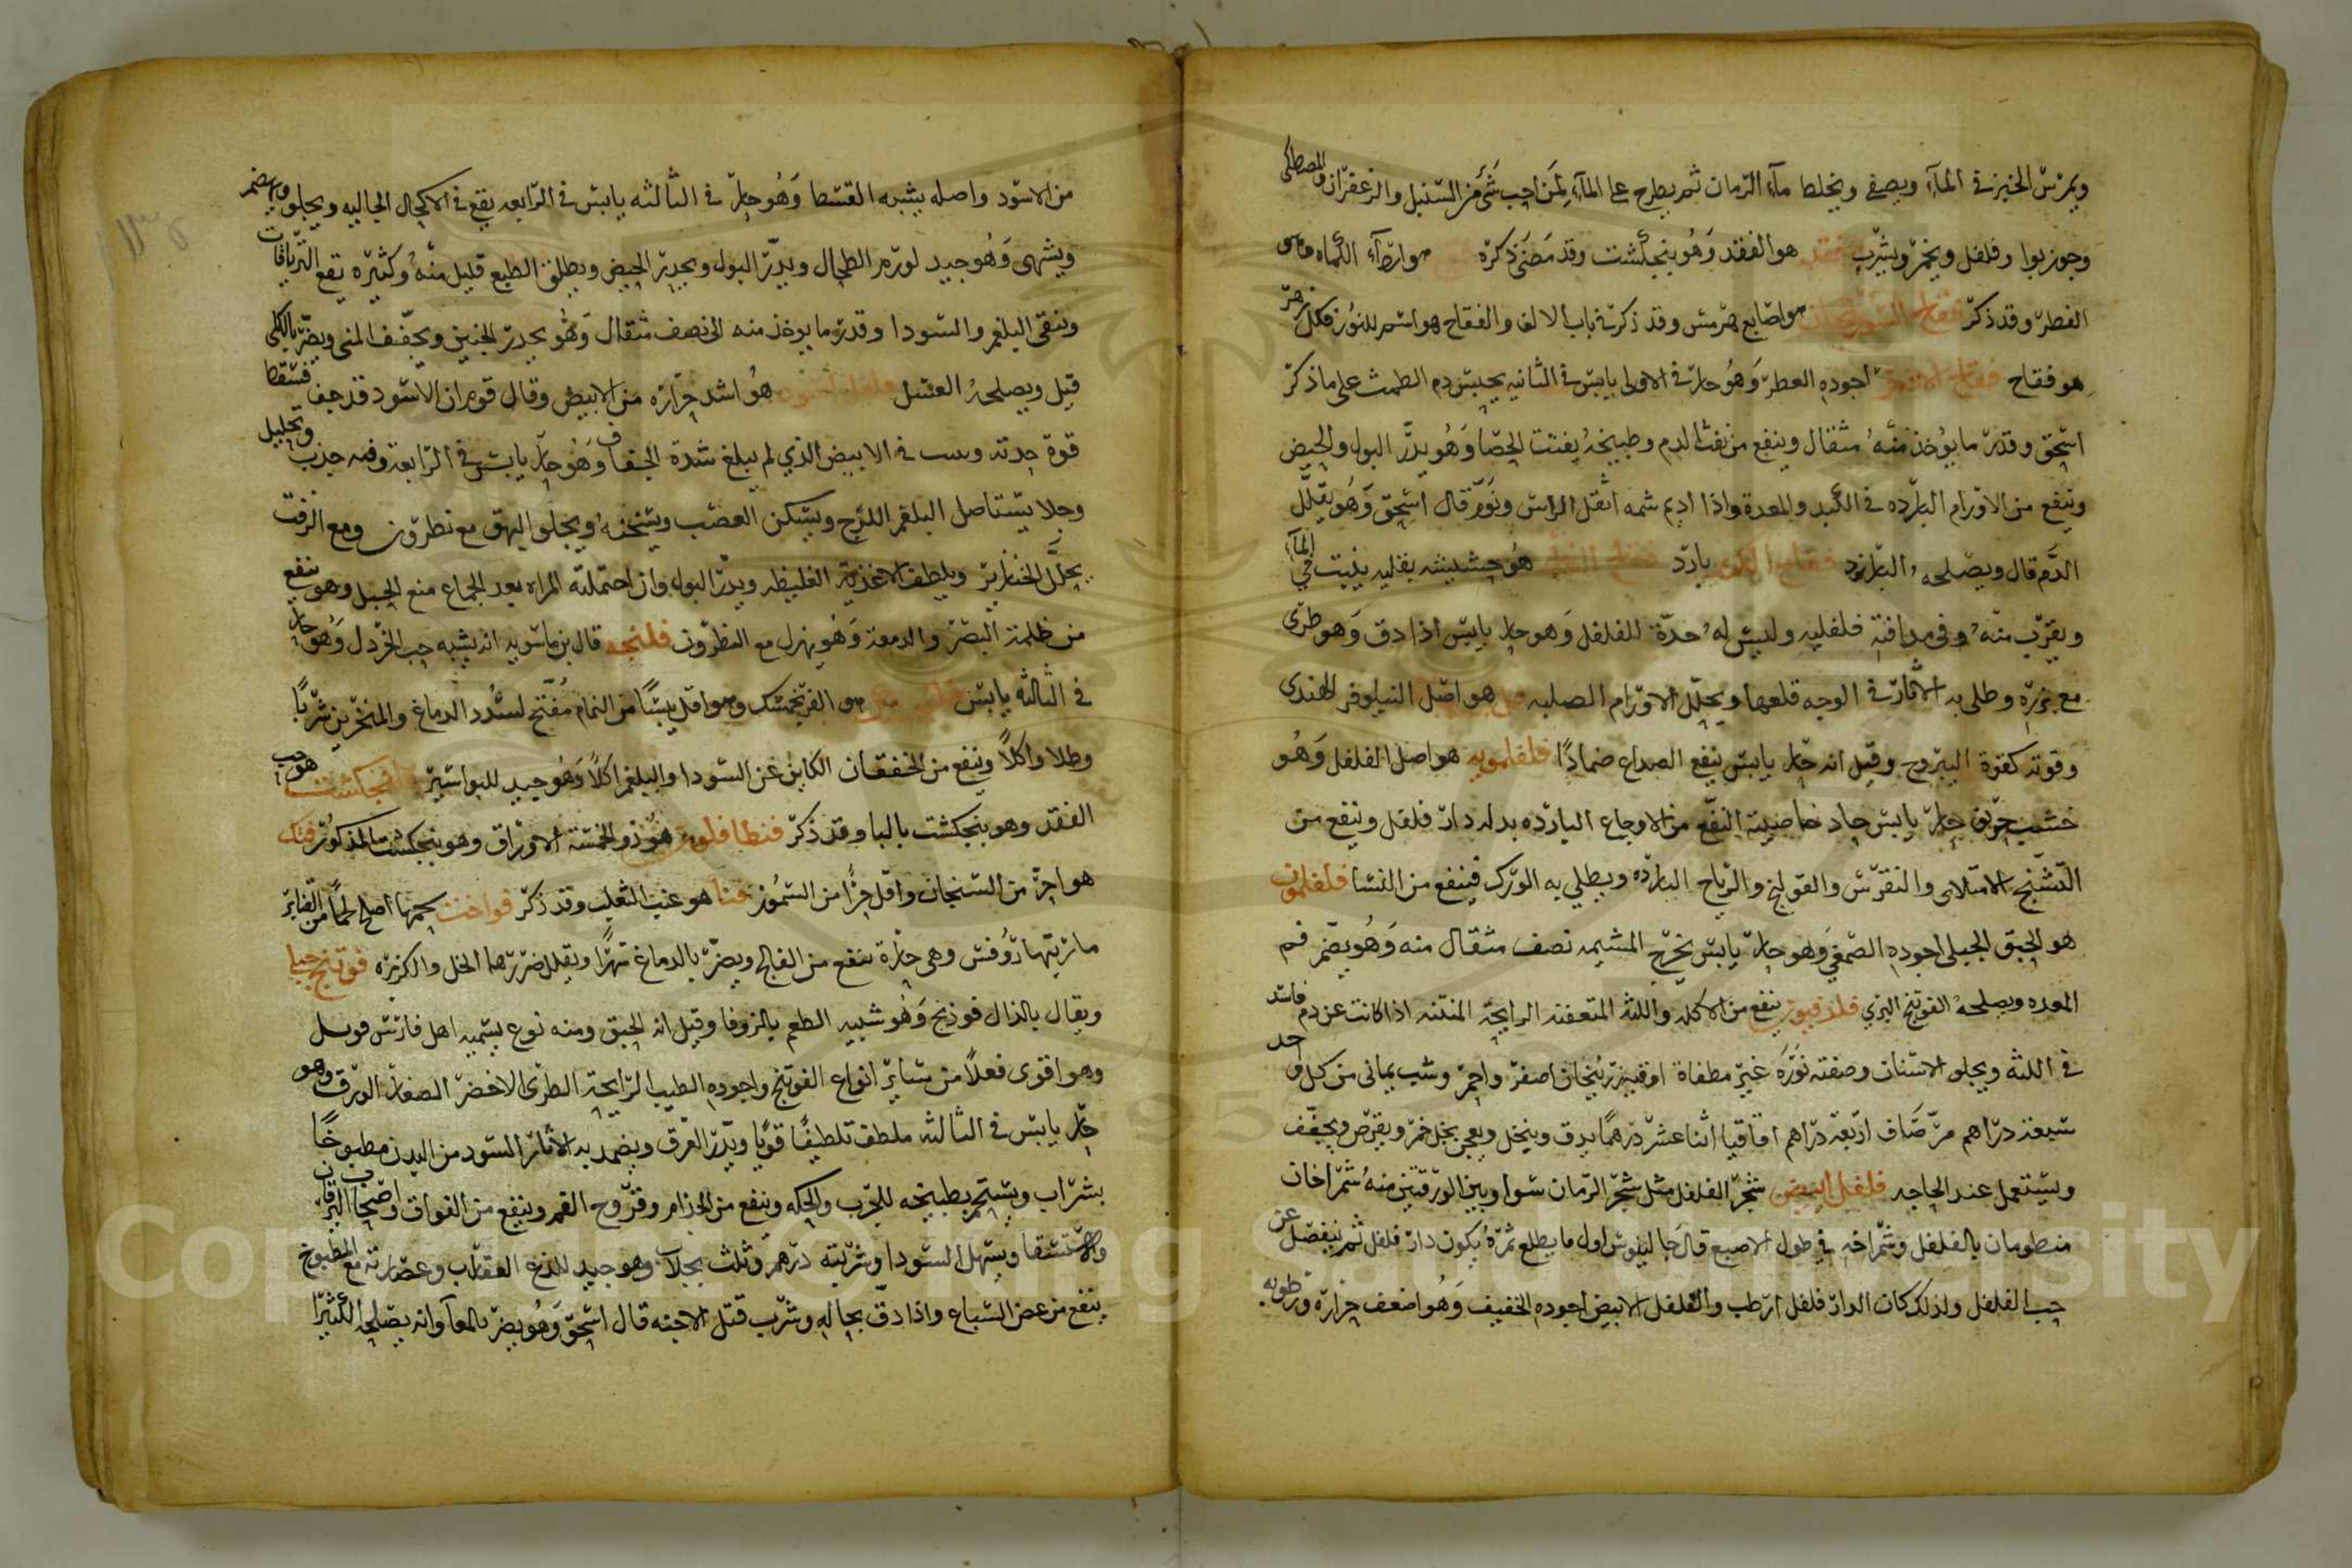 ويمرس الخبز في المآء ويصفى ويخلط مآء الرمان ثم يطرح على المآء لمن احب شئ من السنبل والزعفران والمصطكى
وجوز بوا وفلفل ويخمر ويشرب فقد هو الفقد وهو بنجنكشت وقد مضى ذكره
الفطر وقد ذكر فقاح السورنجان هو اصابع هرمس وقد ذكر في باب الالف والفقاح هو اسم للنور فكل زهر
هو فقاح فقاح الاذخر اجوده العطر وهو حار في الاولى يابس في الثانيه يحبس دم الطمث على ما ذكر
اسحق وقدر ما يؤخذ منه مثقال وينفع من نفث الدم وطبيخه يفتت الحصا وهو يدر البول والحيض
وينفع من الاورام البارده في الكبد والمعدة واذا اديم شمه اثقل الراس ونوم قال اسحق وهو يقلل
الدم قال ويصلحه فقاح الكرم بارد هو حشيشه بقليه ينبت في المآء
ويقرب منه وفي مذاقه فلفليه وليس له حدة الفلفل وهو حار يابس اذا دق وهو طرى
مع بزره وطلى به الاثار في الوجه قلعها ويحلل الاورام الصلبه هو اصل النيلوفر الهندى
وقوته كقوة اليبروح وقيل انه حار يابس ينفع الصداع ضمادا فلفلمويه هو اصل الفلفل وهو
خشب حريف حار يابس حاد خاصيته النفع من الاوجاع البارده بدله دار فلفل وينفع من
التشنج الامتلاى والنقرس والقولنج والرياح البارده ويطلى به الورك فينفع من النسا فلفلمون
هو الحبق الجبلى اجوده الصمغي وهو حار يابس يخرج المشيمه نصف مثقال منه وهو يضر فم
المعده ويصلحه الفوتنج البري فلدفيون ينفع من الاكله واللثه المتعفنه الرايحة المنتنه اذا كانت عن دم فاسد
في اللثه ويجلو الاسنان وصفته نوره غير مطفاة اوقيه زرنيخان اصفر واحمر وشب يمانى من كل واحد
سبعة دراهم مر صاف اربعة دراهم اقاقيا اثنا عشر درهما يدق وينخل ويعجن بخل خمر ويقرص ويجفف
ويستعمل عند الحاجه فلفل ابيض شجر الفلفل مثل شجر الرمان سوا وبين الورقتين منه شمراخان
منظومان بالفلفل وشمراخه في طول الاصبع قال جالينوس اول ما يطلع ثمرة يكون دار فلفل ثم ينفصل عن
حب الفلفل ولذلك كان الدار فلفل ارطب والفلفل الابيض اجوده الخفيف وهو اضعف حرارة ورطوبه
من الاسود واصله يشبه القسط وهو حار في الثالثه يابس في الرابعه يقع في الاكحال الجاليه ويجلو ويهضم
ويشهى وهو جيد لورم الطحال ويدر البول ويحدر الحيض ويطلق الطبع قليل منه وكثيره يقع الترياقات
وينقى البلغم والسودا وقدر ما يوخذ منه الى نصف مثقال وهو يحدر الجنين ويجفف المنى ويضر بالكلى
قيل ويصلحه العسل فلفل اسود هو اشد حراره من الابيض وقال قوم ان الاسود قد جف فسقط
قوة حدته في الابيض الذي لم يبلغ شدة الجفاف وهو حار يابس في الرابعة وفيه جذب وتحليل
وجلا يستاصل البلغم اللزج ويسكن العصب ويسخنه ويجلو البهق مع نطرون ومع الزفت
يحلل الخنازير ويلطف الاغذية الغليظه ويدر البول وان احتملته المراه بعد الجماع منع الحبل وهو ينفع
من ظلمة البصر والدمعة وهو يهزل مع النطرون فلنجه قال بن ماسويه انه يشبه حب الخردل وهو حار
في الثالثه يابس هو الفرنجمشك وهو اقل يبسا من النمام مفتح لسدد الدماغ والمنخرين شربا
وطلا واكلا وينفع من الخفقان الكاين عن السودا والبلغم اكلا وهو جيد للبواسير فنجنكشت هو حب
الفقد وهو بنجنكشت بالبا وقد ذكر فنطافلون هو ذو الخمسة الاوراق وهو بنجنكشت المذكور فنك
هو احر من السنجاب واقل حرا من السمور فنا هو عنب الثعلب وقد ذكر فواخت لحمها اصلح لحما من الضاير
ما زيتها روفس وهى حارة تنفع من الفالج ويضر بالدماغ سهرا ويقلل ضررها الخل والكزبره فوتنج
ويقال بالذال فوذنج وهو شبيه الطعم بالزوفا وقيل انه الحبق ومنه نوع يسميه اهل فارس
وهو اقوى فعلا من ساير انواع الفوتنج واجوده الطيب الرايحة الطرى الاخضر الصغار الورق وهو
حار يابس في الثالثه ملطف تلطيفا قويا ويدر العرق ويضمد به الاثار السود من البدن مطبوخا
بشراب ويستحم بطبيخه للجرب والحكه وينفع من الجذام وقروح الفم وينفع من الفواق واصحاب اليرقان
والاستسقا ويسهل السودا وشربته درهم وثلث بجلاب وهو جيد للذع العقارب وعصارته مع المطبوخ
ينفع من عض السباع واذا دق بحاله وشرب قتل الاجنه قال اسحق وهو يضر بالمعا وانه يصلحه الكثيرا